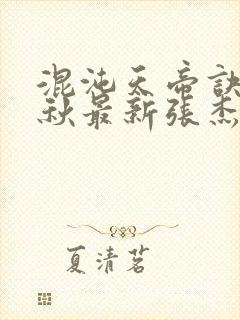 混沌天帝訣
秋最新張杰
夏清茗